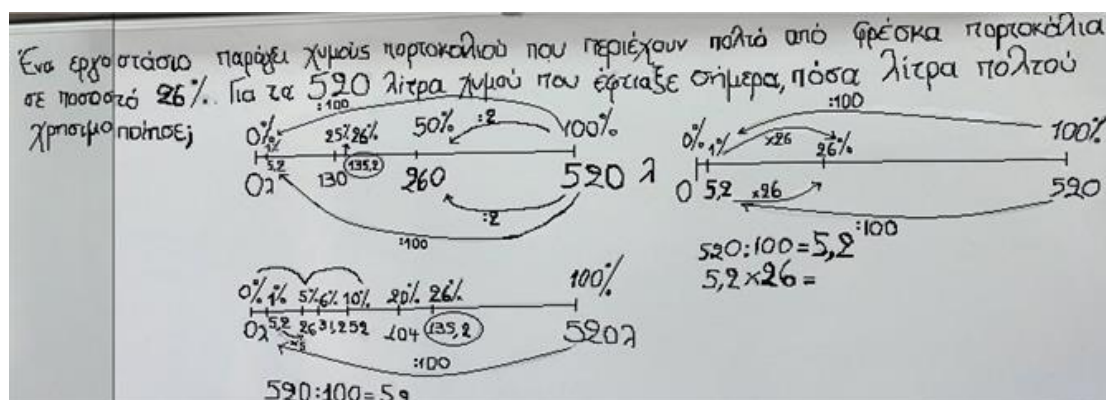 Ένα εργοστάσιο παράγει χυμούς πορτοκαλιού που περιέχουν πολτό από φρέσκα πορτοκάλια
σε ποσοστό 26%. Για τα 520 λίτρα χυμού που έφτιαξε σήμερα, πόσα λίτρα πολτού
χρησιμοποίησε;
:100
0% 1% 25% 26% 50% :2 100%
0λ 5,2 130 135,2 260 520 λ
:2
:100
:100
0% 1% ×26 26% 100%
0 5,2 ×26 520
:100
520:100=5,2
5,2×26=
0% 1% 5% 6% 10% 20% 26% 100%
0λ 5,2 26 31,2 52 104 135,2 520λ
×5
:100
520:100=5,2